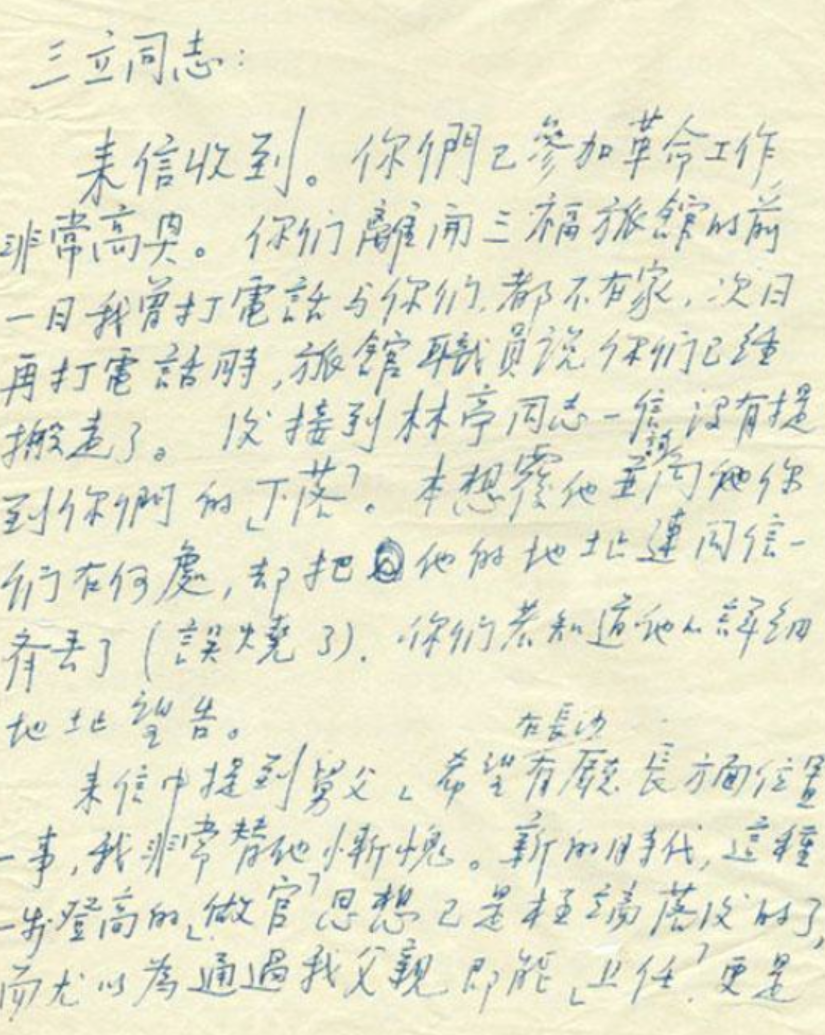 三立同志:
来信收到。你們已參加革命工作,
非常高興。你们離開三福旅館的前
一日我曾打電話与你们,都不在家,次日
再打電話時,旅館職員说你们已經
搬走了。後接到林亭同志一信沒有提
到你們的「下落」。本想覆他並詢他你
们在何處,却把他的地址連同信一
齊丟了(誤燒了)。你们若知道他的詳細
地址望告。
在長沙
来信中提到舅父「希望有廳長方面位置」
一事,我非常替他慚愧。新的時代,這種
一步登高的「做官」思想已是極端落後的了,
而尤以為通過我父親即能「上任」,更是